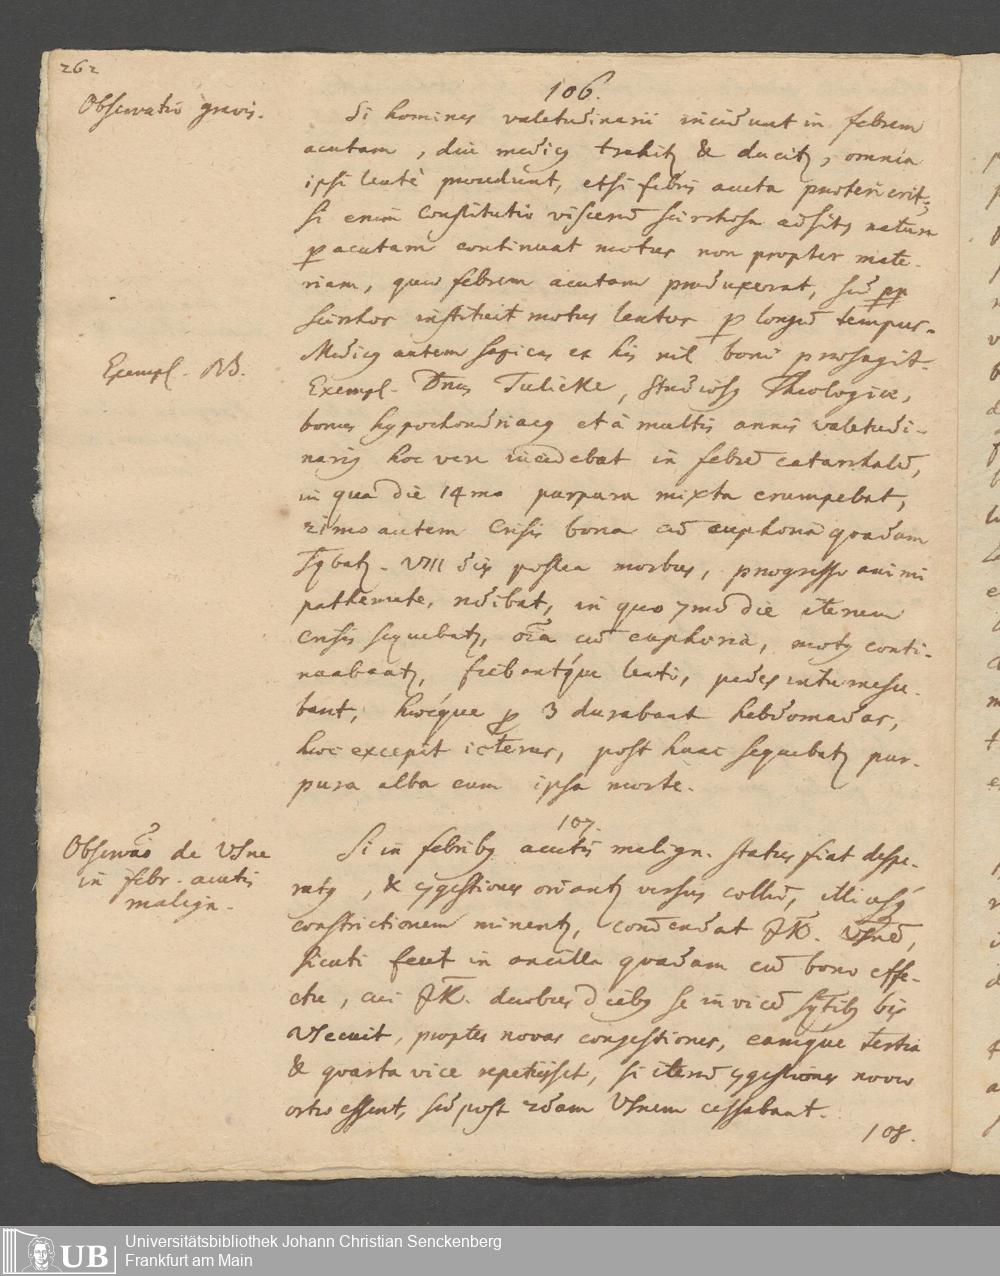 262
106.
Observatio gravis.
Si homines valetudinarii incidunt in febrem
acutam, diu medic9 trahit & ducit, omnia
ipsi lentè procedunt, etsi febris acuta praeterierit;
si enim constitutio viscerū scirrhosa adsit, natura
p acutam continuat motus non propter mate-
riam, quae febrem acutam produxerat, sed pp
scirrhos instituit motus lentos p longū tempus.
Medic9 autem sapiens ex his nil boni praesagit.
Exempl. NB.
Exempl. Dnus Tulicke, Studios9 Theologiae,
bonus hypochondriac9 et à multis annis valetudi-
nari9 hoc vere incidebat in febrē catarrhalē,
in qua die 14mo purpura mixta erumpebat,
21mo autem Crisis bona cū euphoria quadam
VIII dies postea morbus, progresso animi
pathemate, redibat, in quo 7mo die iterum
Crisis sequebat, oīa cū euphoria, mot9 conti-
nuabant, fiebantque lenti, pedes intumesce-
bant, haecque p 3 durabant hebdomadas,
hoc excepit icterus, post hunc sequebat pur-
pura alba cum ipsa morte.
107.
Observaō de VSne
in febr. acutis
malign.
Si in febrib9 acutis malign. status fiat despe-
rat9, & cgestiones oriant versus collū,
constrictionem minent, condendat VSnē,
sicuti fecit in ancilla quadam cū bono effe-
ctu, cui duobus dieb9 se invicē bis
VSecuit, propter novas congestiones, eamque tertia
& quarta vice repetiisset, si iterū cgestiones novae
ortae essent, sed post 2dam VSnem cessabant.
108.
Universitätsbibliothek Johann Christian Senckenberg
UB Frankfurt am Main